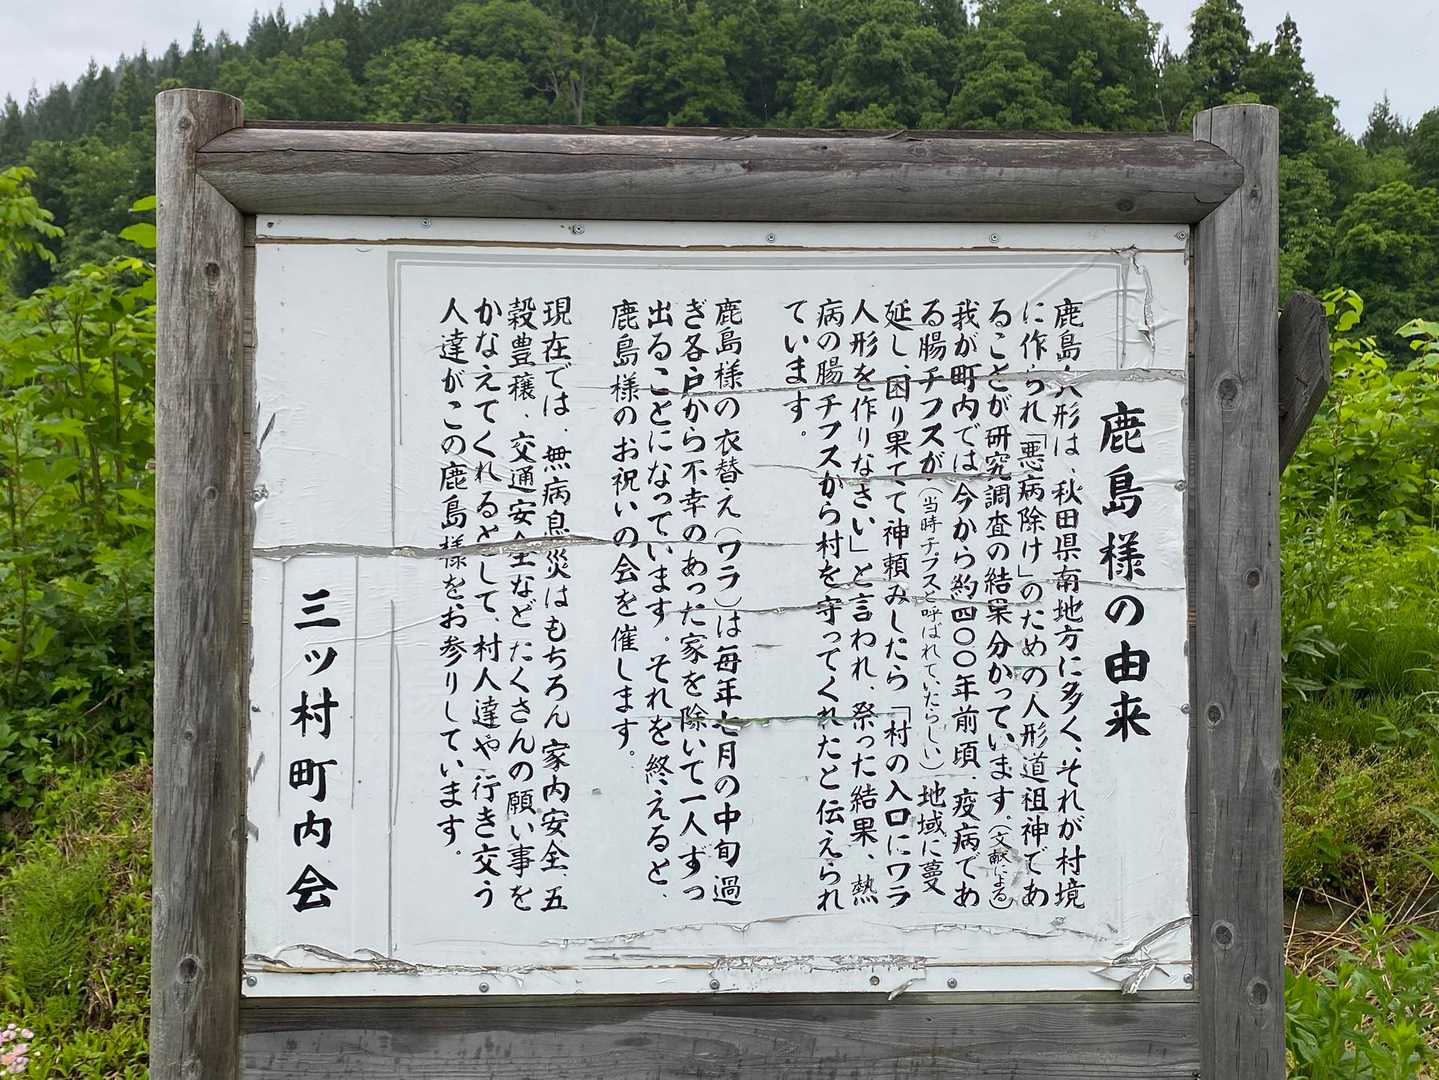 鹿島様の由来
鹿島人形は、秋田県南地方に多く、それが村境
に作られ「悪病除け」のための人形道祖神であ
ることが研究調査の結果分かっています。(文献による)
我が町内では今から約四〇〇年前頃、疫病であ
る腸チフスが(当時チプスと呼ばれていたらしい)地域に蔓
延し、困り果てて神頼みしたら「村の入口にワラ
人形を作りなさい」と言われ、祭った結果、熱
病の腸チフスから村を守ってくれたと伝えられ
ています。
鹿島様の衣替え(ワラ)は毎年七月の中旬過
ぎ各戸から不幸のあった家を除いて一人ずつ
出ることになっています。それを終えると、
鹿島様のお祝いの会を催します。
現在では、無病息災はもちろん家内安全、五
穀豊穣、交通安全などたくさんの願い事を
かなえてくれるとして、村人達や行き交う
人達がこの鹿島様をお参りしています。
三ッ村町内会